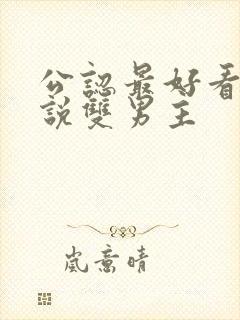 公認最好看
說雙男主
嵐意晴